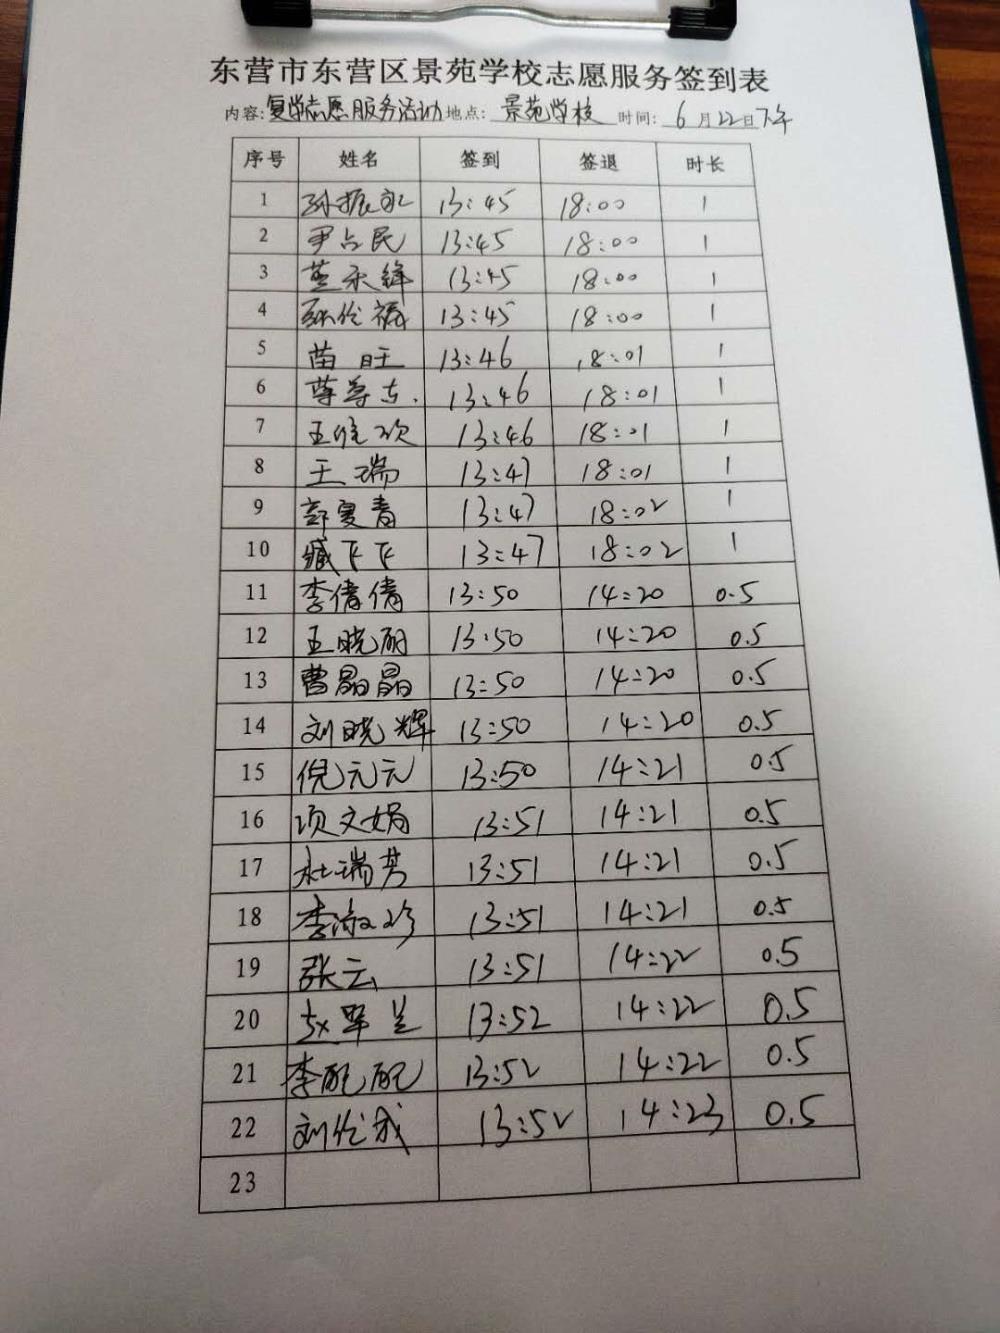 东营市东营区景苑学校志愿服务签到表
内容:复学志愿服务活动 地点: 景苑学校 时间: 6月22日下午
序号 姓名 签到 签退 时长
1 孙振永 13:45 18:00 1
2 尹占民 13:45 18:00 1
3 13:45 18:00 1
4 13:45 18:00 1
5 苗旺 13:46 18:01 1
6 13:46 18:01 1
7 13:46 18:01 1
8 王瑞 13:47 18:01 1
9 薛夏青 13:47 18:02 1
10 臧飞飞 13:47 18:02 1
11 李倩倩 13:50 14:20 0.5
12 王晓丽 13:50 14:20 0.5
13 曹晶晶 13:50 14:20 0.5
14 刘晓辉 13:50 14:20 0.5
15 倪元元 13:50 14:21 0.5
16 项文娟 13:51 14:21 0.5
17 杜瑞芳 13:51 14:21 0.5
18 李淑珍 13:51 14:21 0.5
19 张云 13:51 14:22 0.5
20 13:52 14:22 0.5
21 李配配 13:52 14:22 0.5
22 刘伦成 13:52 14:23 0.5
23